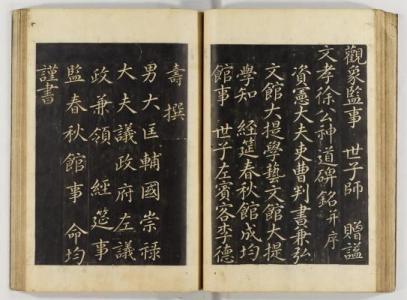 觀象監事 世子師 贈謚
文孝徐公神道碑銘并序
資憲大夫吏曹判書兼弘
文館大提學藝文館大提
學知 經筵春秋館成均
館事 世子左賓客李德
壽撰
男大匡輔國崇祿
大夫議政府左議
政兼領 經筵事
監春秋館事 命均
謹書